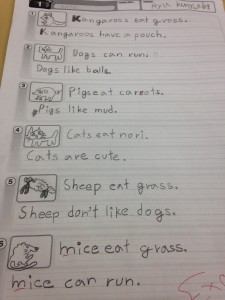 1
① Kangaroos eat grass.
Kangaroos have a pouch.
② Dogs can run.
Dogs like balls.
③ Pigs eat carrots.
Pigs like mud.
④ Cats eat nori.
Cats are cute.
⑤ Sheep eat grass.
Sheep don't like dogs.
mice eat grass.
mice can run.